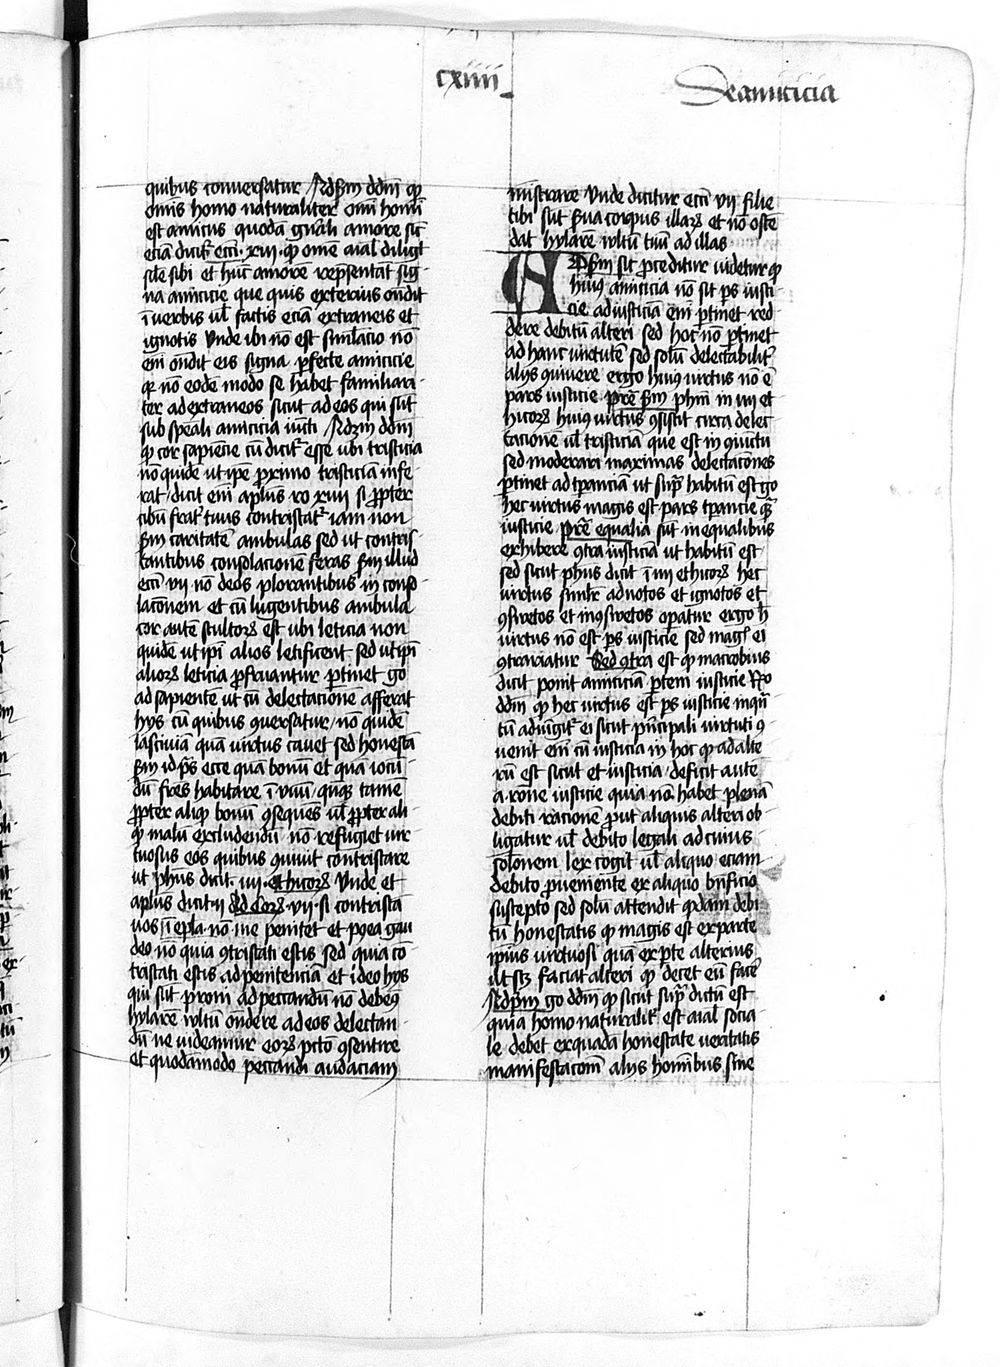 cxiiii
De amicicia
quibus conversatur Ad pm ddm qp
omis homo naturaliter omi homi
est amicus quodã gnali amore sic
eciã dicitr ecci · xiii · qp ome aial diligit
sile sibi et hunc amore repsentãt sig-
na amicicie que quis exterius ondit
ĩ verbis vl factis eciã extraneis et
ignotis vnde ibi no est simlacio no
em ondit eis signa pfecte amicicie
qr no eode modo se habet familiari-
ter ad extraneos sicut ad eos qui sut
sub speali amicicia iucti Ad 2m ddm
qp cor sapiencie cu dicitr esse vbi tristicia
no quide ut ipe primo tristiciã infe-
rat dicit em aplus ro xiiii si ppter
cibu frater tuus contristatr iam non
scdm caritate ambulas sed ut contris-
tantibus consolacione feras scdm illud
ecci vii no desis plorantibus in conso-
lacionem et cu lugentibus ambula
cor aute stultorum est ubi leticia non
quide ut ipi alios letificent sed ut ipi
aliorum leticia pfruantur ptinet go
ad sapiente ut cu delectacione afferat
hys cu quibus conversatur no quide
lasciviã quã virtus cavet sed honestã
scdm id ps ecce quã bonu et quã iocu-
du fres habitare ĩ unu quãqz tame
ppter aliqp bonu consequens vl ppter ali-
qp malu excludendu no refugiet vir-
tuosus eos quibus convivit contristare
ut phus dicit · iiii · ethicorum Vnde et
aplus dicit ii ad Corum · vii · si contristã
vos ĩ epla no me penitet et postea gau-
deo no quia contristati estis sed quia co-
tristati estis ad penitenciã et ideo hys
qui sut proni ad peccandu no debemus
hylare vultu ondere ad eos delectan-
du ne videamur eorum pcto consentire
et quodãmodo peccandi audaciam
ministrare vnde dicitur ecci vii filie
tibi sut serva corpus illarum et no oste-
dat hylare vultu tuu ad illas
Ad scdm sic proceditur videtur qp
huius amicicia no sit ps iusti-
cie ad iusticiã em ptinet red-
dere debitu alteri sed hoc no ptinet
ad hanc virtute sed solu delectabilitr
alys convivere ergo huius virtus no e
pars iusticie Pre scdm phm in iiii et
hicorum huius virtus consistit circa delec-
tacione vl tristiciã que est in convictu
sed moderari maximas delectaciones
ptinet ad tpanciã ut supra habitu est go
hec virtus magis est pars tpancie quã
iusticie Pre equalia sut inequalibus
exhibere contra iusticiã ut habitu est
sed sicut phus dicit ĩ iiii ethicorum hec
virtus similr ad notos et ignotos et
consuetos et inconsuetos opatur ergo h
virtus no est ps iusticie sed magis ei
contrariatur Sed contra est qp macrobius
dicit ponit amiciciã ptem iusticie Rno
ddm qp hec virtus est ps iusticie inqua-
tu adiungitr ei sicut pncipali virtuti co-
venit em cu iusticia in hoc qp ad alte-
ru est sicut et iusticia deficit aute
a rone iusticie quia no habet plenã
debiti racione put aliquis alteri ob-
ligatur vl debito legali ad cuius
solonem lex cogit vl aliquo eciam
debito proveniente ex aliquo bnficio
suscepto sed solu attendit quodam debi-
tu honestatis qp magis est ex parte
ipsius virtuosi quã ex pte alterius
ut scz faciat alteri qp decet eu face
Ad pm go ddm qp sicut supra dictu est
quia homo naturalitr est aial socia-
le debet ex quadã honestate veritatis
manifestacione alys hominibus sine